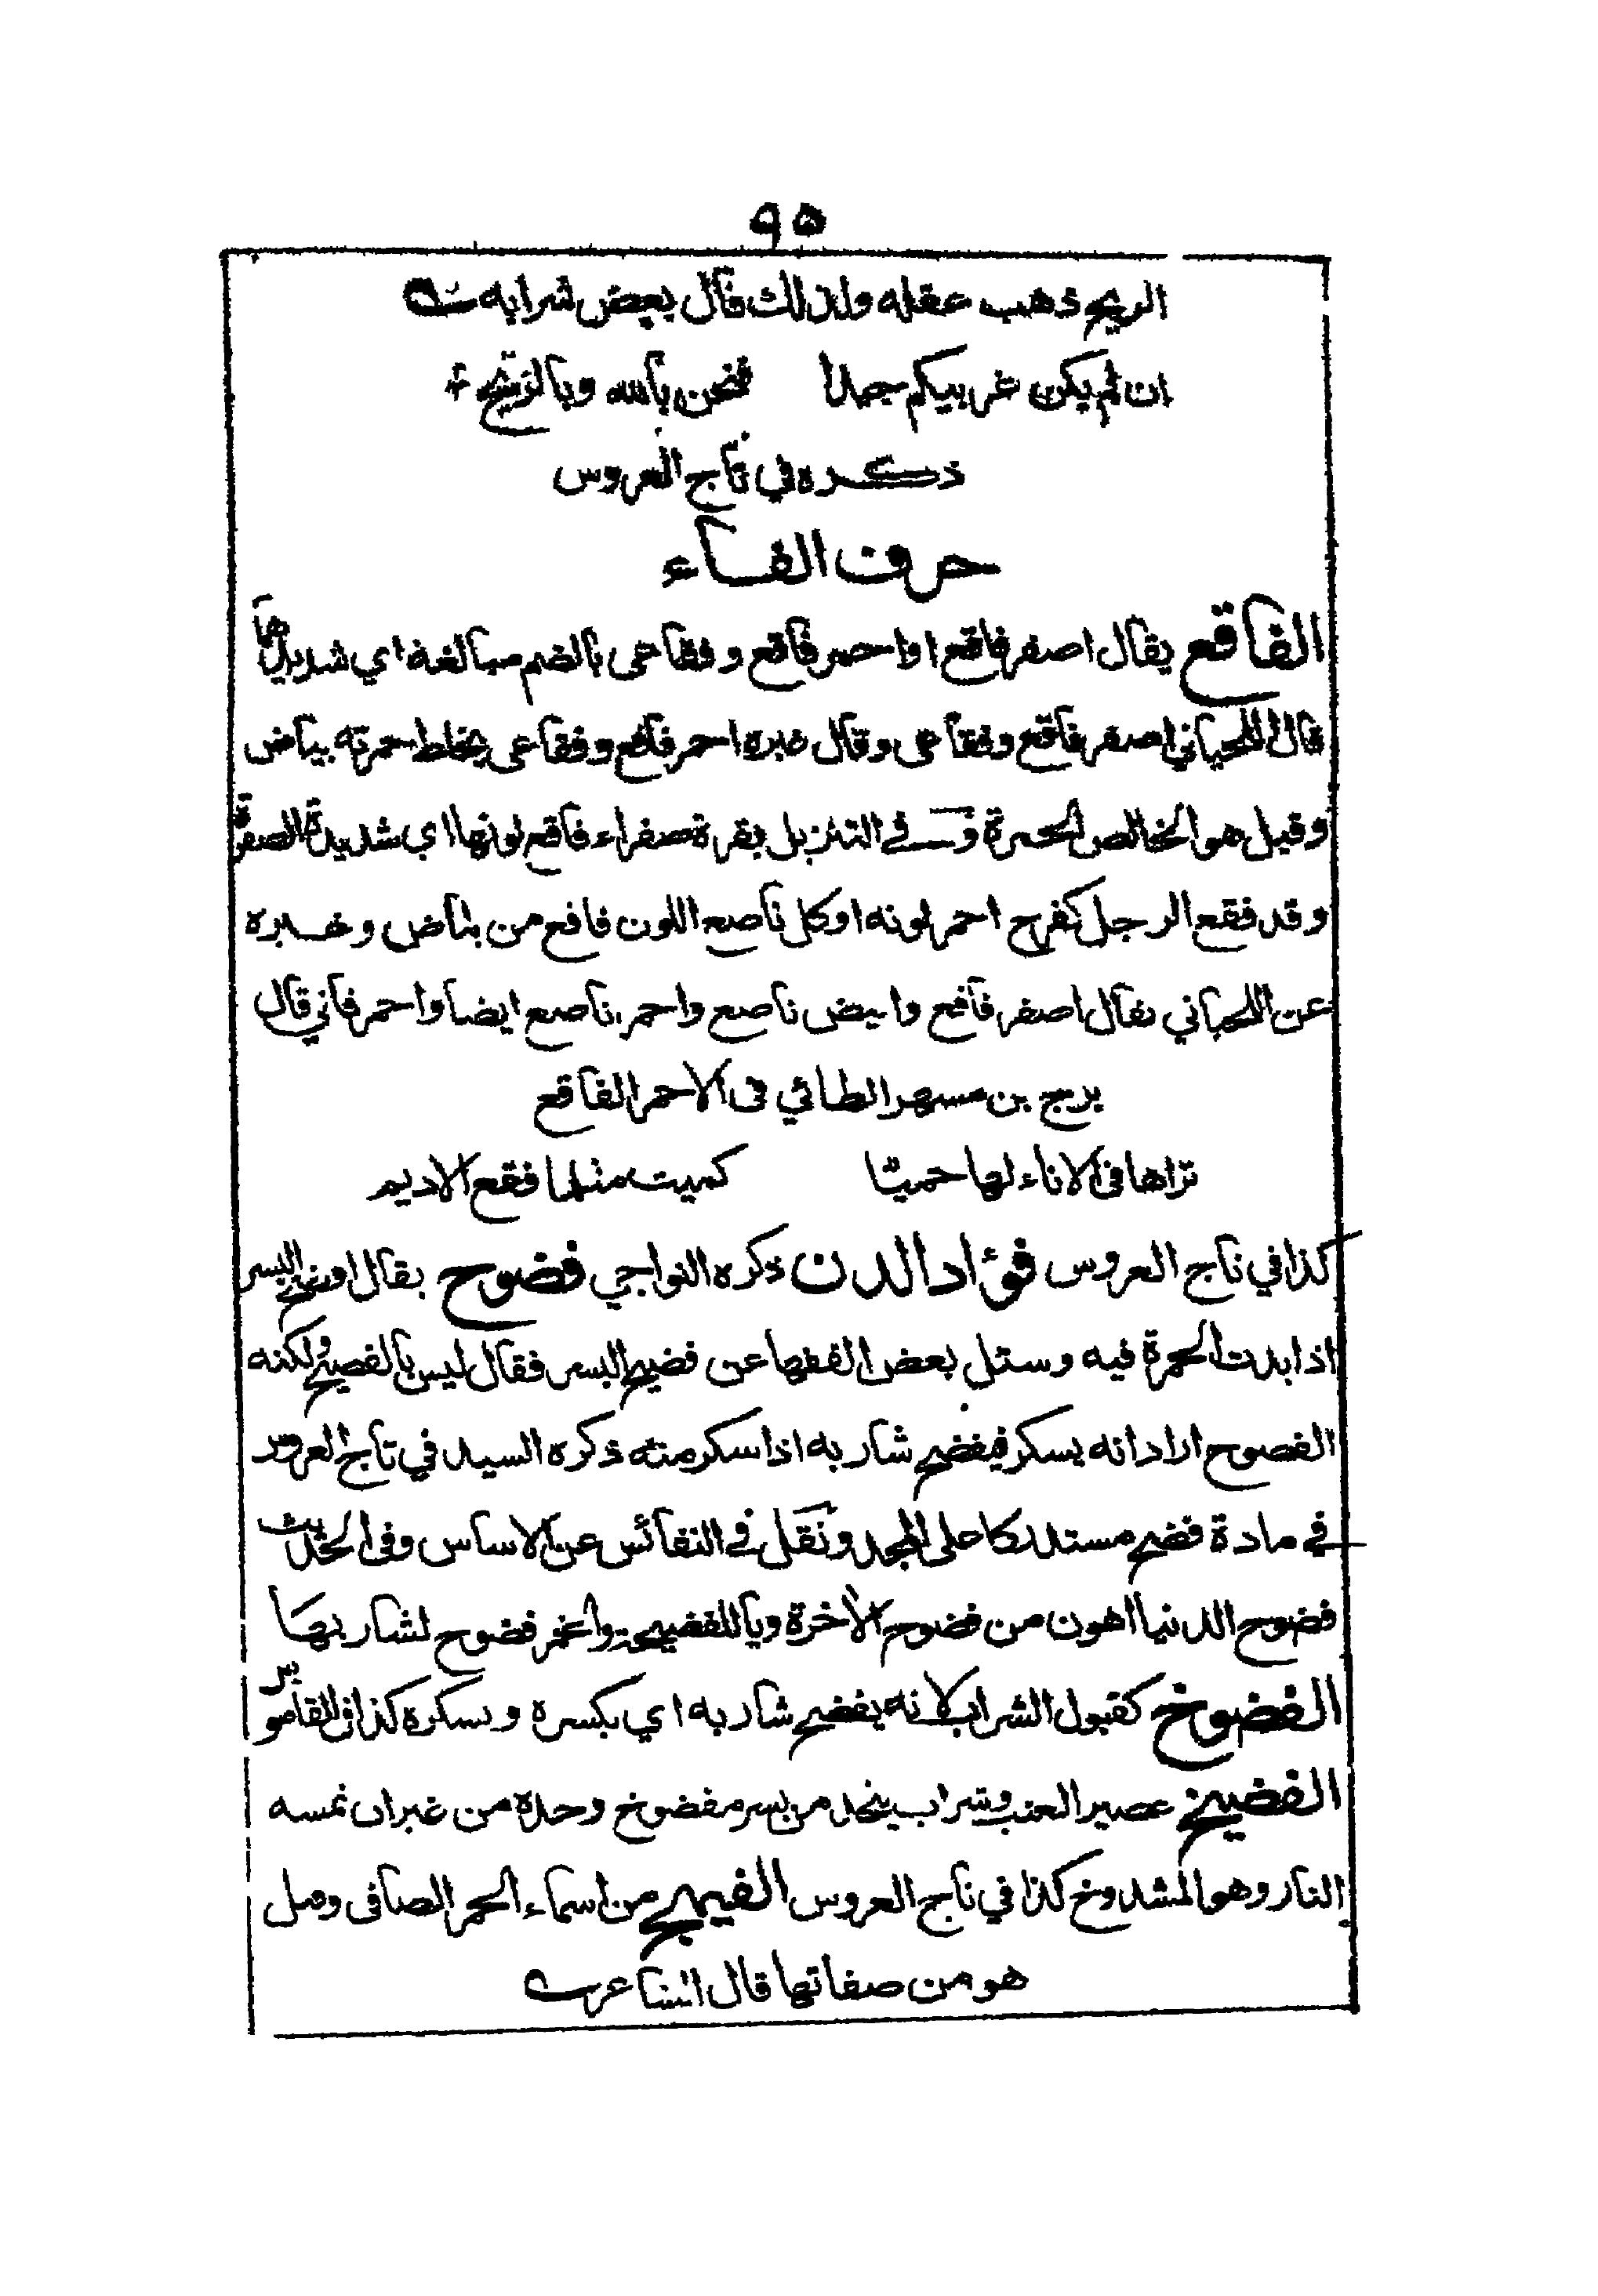 ٩٥
الريح ذهب عقله ولذلك قال بعض شرابه
ان لم يكن غربيكم جيدا فنحن بالله وبالريح
ذكره في تاج العروس
حرف الفاء
الفاقع يقال اصفر فاقع او احمر فاقع وفقاعى بالضم مبالغة اي شديدهما
قال اللحياني اصفر فاقع وفقاعى وقال غيره احمر فاقع وفقاعى يخلط حمرته بياض
وقيل هو الخالص الحمرة وفي التنزيل بقرة صفراء فاقع لونها اي شديدة الصفرة
وقد فقع الرجل كفرح احمر لونه او كل ناصع اللون فاقع من بياض وغيره
عن اللحياني يقال اصفر فاقع وابيض ناصع واحمر ناصع ايضا واحمر قاني قال
برج بن مسهر الطائي في الاحمر الفاقع
تراها في الاناء لها حميا كميت مثلما فقع الاديم
كذا في تاج العروس فؤاد الدن ذكره النواجي فضوح يقال افضح البسر
اذا بدت الحمرة فيه وسئل بعض الفقها عن فضيح البسر فقال ليس بالفضيح ولكنه
الفضوح اراد انه يسكر فيفضح شاربه اذا سكر منه ذكره السيد في تاج العروس
في مادة فضح مستدركا على المجد ونقل في النفائس عن الاساس وفي الحديث
فضوح الدنيا اهون من فضوح الاخرة ويا للفضيحة والخمر فضوح لشاربها
الفضوخ كقبول الشراب لانه يفضخ شاربه اي يكسره ويسكره كذا في القاموس
الفضيخ عصير العنب وشراب يتخذ من بسر مفضوخ وحده من غير ان تمسه
النار وهو المشدوخ كذا في تاج العروس الفيهج من اسماء الخمر الصافي وقيل
هو من صفاتها قال الشاعر